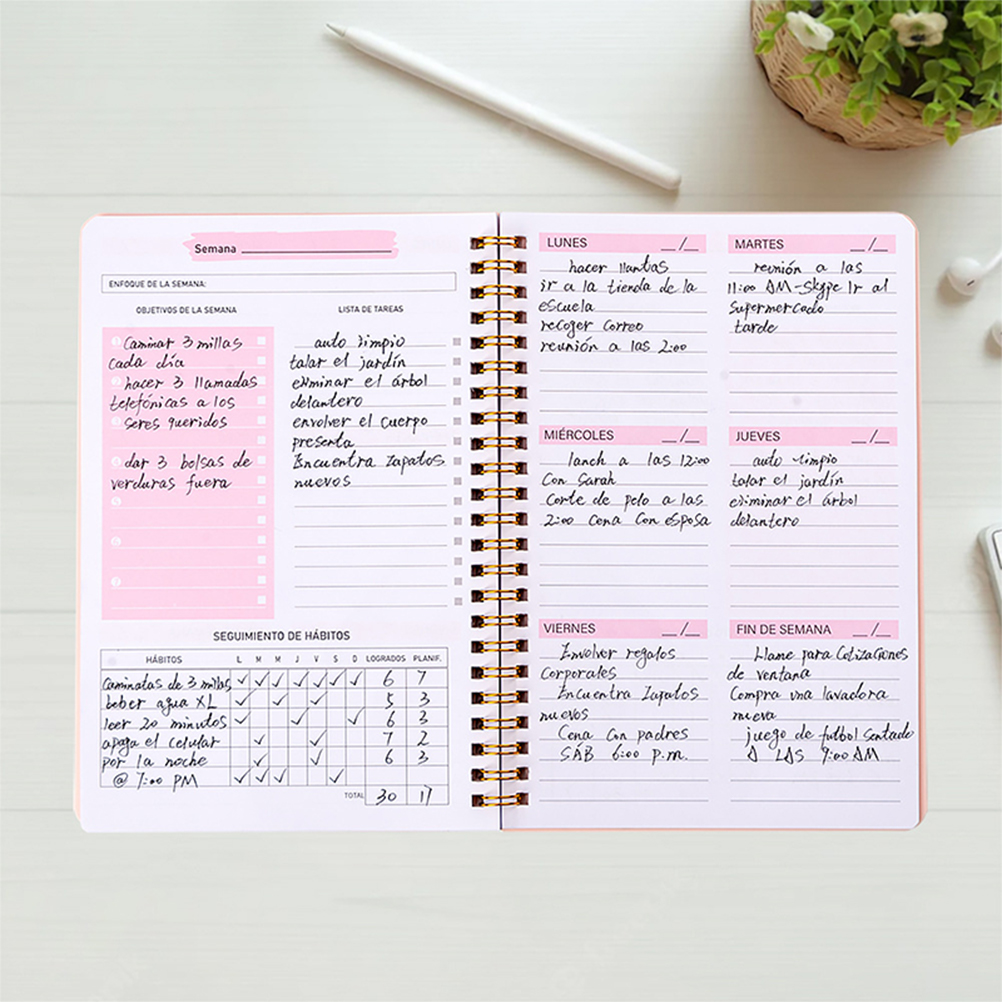 Semana
ENFOQUE DE LA SEMANA:
OBJETIVOS DE LA SEMANA
Caminar 3 millas
cada día
hacer 3 llamadas
telefónicas a los
seres queridos
dar 3 bolsas de
verduras fuera
LISTA DE TAREAS
auto limpio
talar el jardín
eliminar el árbol
delantero
envolver el cuerpo
presenta
Encuentra zapatos
nuevos
SEGUIMIENTO DE HÁBITOS
HÁBITOS L M M J V S D LOGRADOS PLANIF.
caminatas de 3 millas ✓ ✓ ✓ ✓ ✓ ✓ ✓ 6 7
beber agua XL ✓ ✓ ✓ 5 3
leer 20 minutos ✓ ✓ ✓ 6 3
apaga el celular ✓ ✓ 7 2
por la noche ✓ ✓ 6 3
@ 7:00 PM ✓ ✓ ✓ ✓
TOTAL 30 17
LUNES __/__
hacer llantas
ir a la tienda de la
escuela
recoger correo
reunión a las 2:00
MARTES __/__
reunión a las
11:00 AM-Skype Ir al
supermercado
tarde
MIÉRCOLES __/__
lanch a las 12:00
Con Sarah
Corte de pelo a las
2:00 Cena Con esposa
JUEVES __/__
auto limpio
talar el jardín
eliminar el árbol
delantero
VIERNES __/__
Envolver regalos
Corporales
Encuentra Zapatos
nuevos
Cena Con padres
SÁB 6:00 p.m.
FIN DE SEMANA __/__
Llame para Cotizaciones
de ventana
Compra una lavadora
nueva
juego de futbol sentado
A LAS 9:00 AM